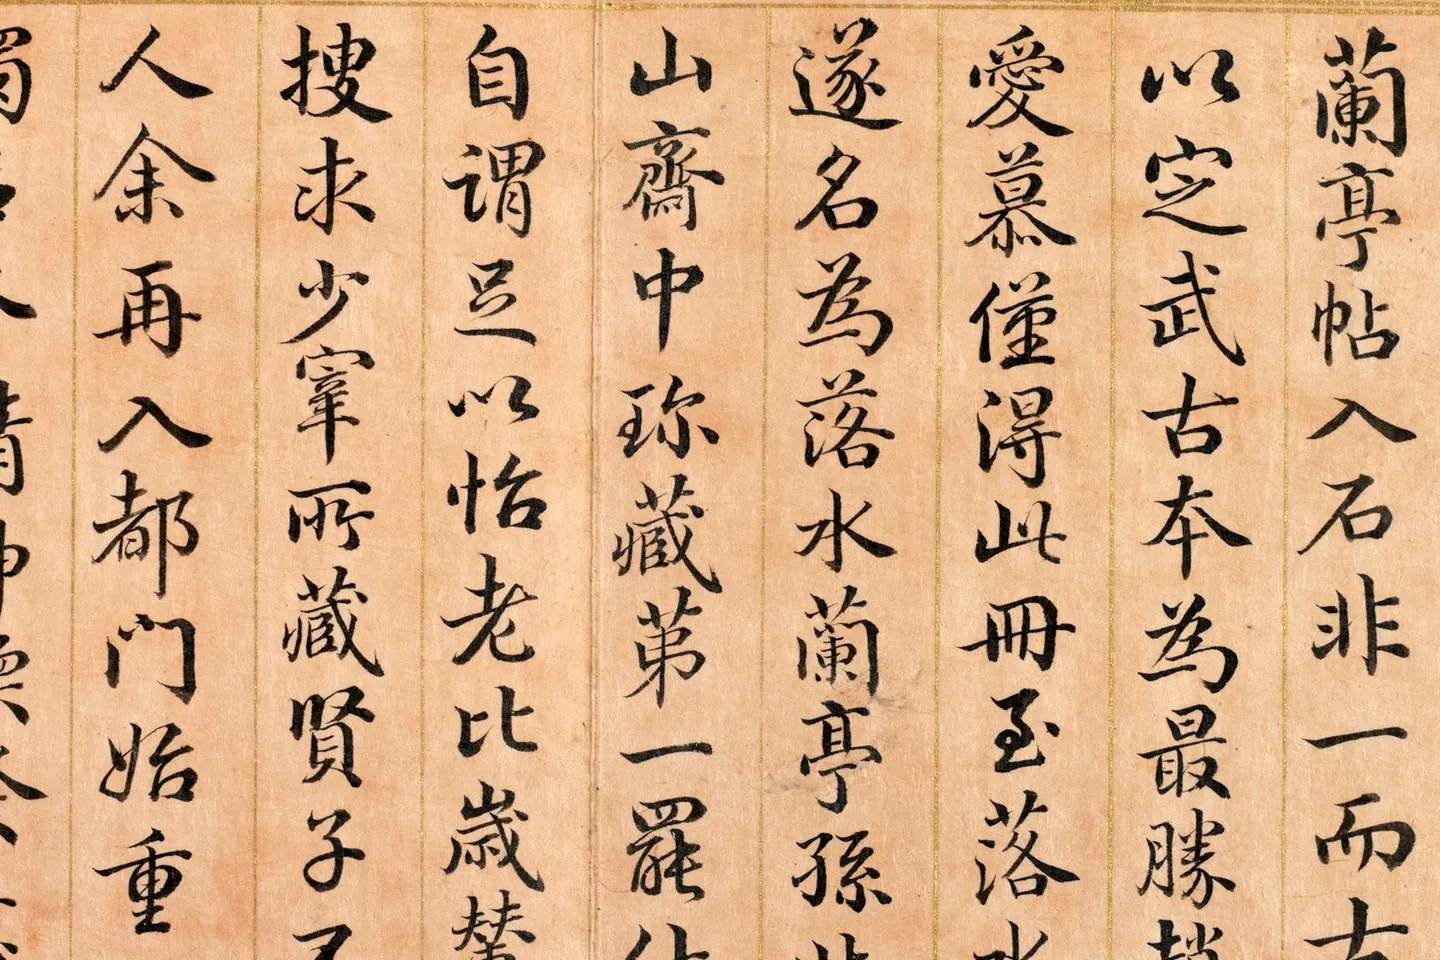 蘭亭帖入石非一而古
以定武古本為最勝趙
愛慕僅得此冊至落水
遂名為落水蘭亭孫
山齋中珎藏苐一罷
自謂足以怡老比歲輦
搜求少宰所藏賢子不
人余再入都門始重